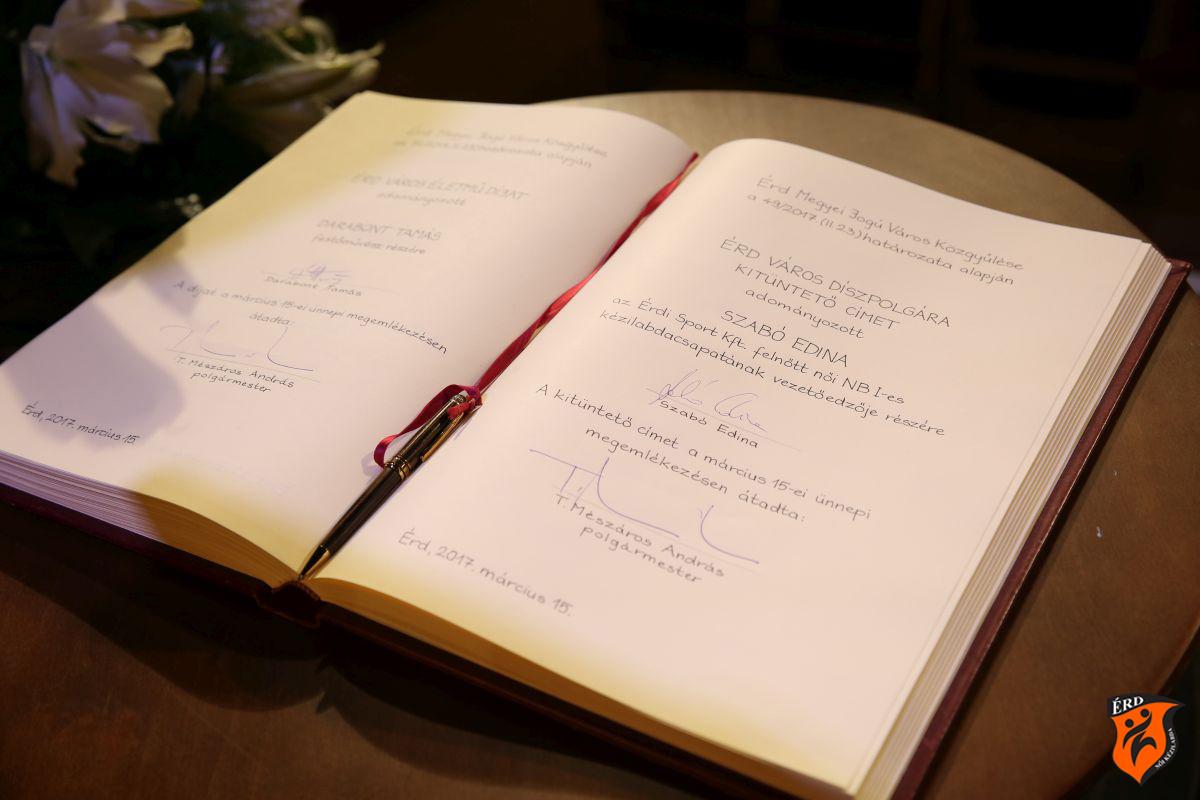 Érd Megyei Jogú Város Közgyűlése
határozata alapján
ÉRD VÁROS ÉLETMŰDÍJAT
adományozott
DARABONT TAMÁS
festőművész részére
Darabont Tamás
A díjat a március 15-ei ünnepi megemlékezésen
átadta:
T. Mészáros András
polgármester
Érd, 2017. március 15.
Érd Megyei Jogú Város Közgyűlése
a 49/2017.(II.23)határozata alapján
ÉRD VÁROS DÍSZPOLGÁRA
KITÜNTETŐ CÍMET
adományozott
SZABÓ EDINA
az Érdi Sport Kft. felnőtt női NB I-es
kézilabdacsapatának vezetőedzője részére
Szabó Edina
A kitüntető címet a március 15-ei ünnepi
megemlékezésen átadta:
T. Mészáros András
polgármester
Érd, 2017. március 15.
ÉRD
NŐI KÉZILABDA